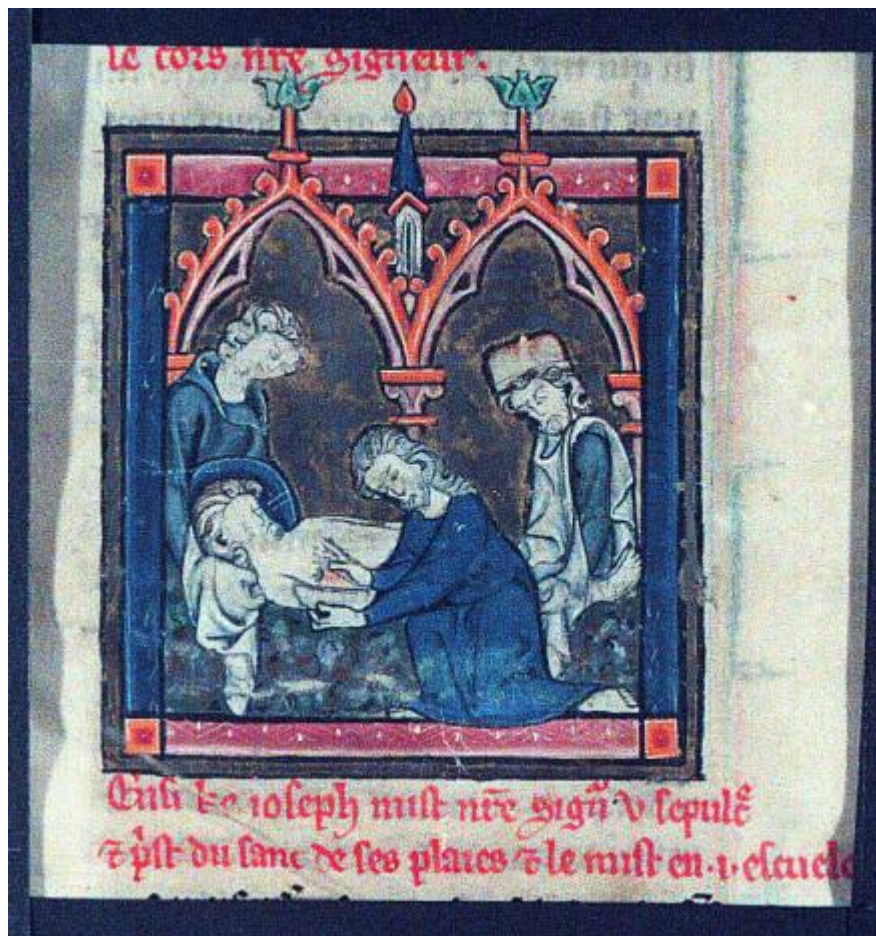 le cors nr̄e signeur.
Ensi ke ioseph mist nr̄e sign̄ v sepulc̄
⁊ p̄st du sanc de ses plaies ⁊ le mist en .i. escuele